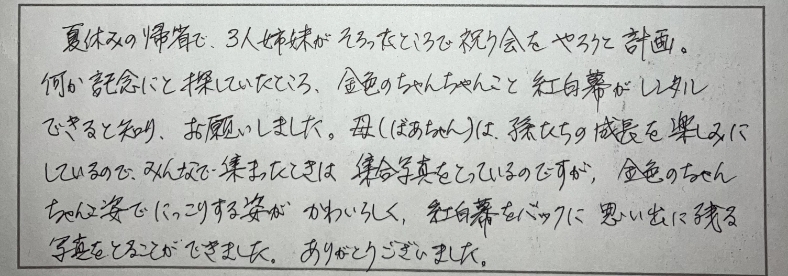 夏休みの帰省で、3人姉妹がそろったところで祝う会をやろうと計画。
何か記念にと探していたところ、金色のちゃんちゃんこと紅白幕がレンタル
できると知り、お願いしました。母(ばあちゃん)は、孫たちの成長を楽しみに
しているので、みんなで集まったときは集合写真をとっているのですが、金色のちゃん
ちゃんこ姿でにっこりする姿がかわいらしく、紅白幕をバックに思い出に残る
写真をとることができました。ありがとうございました。